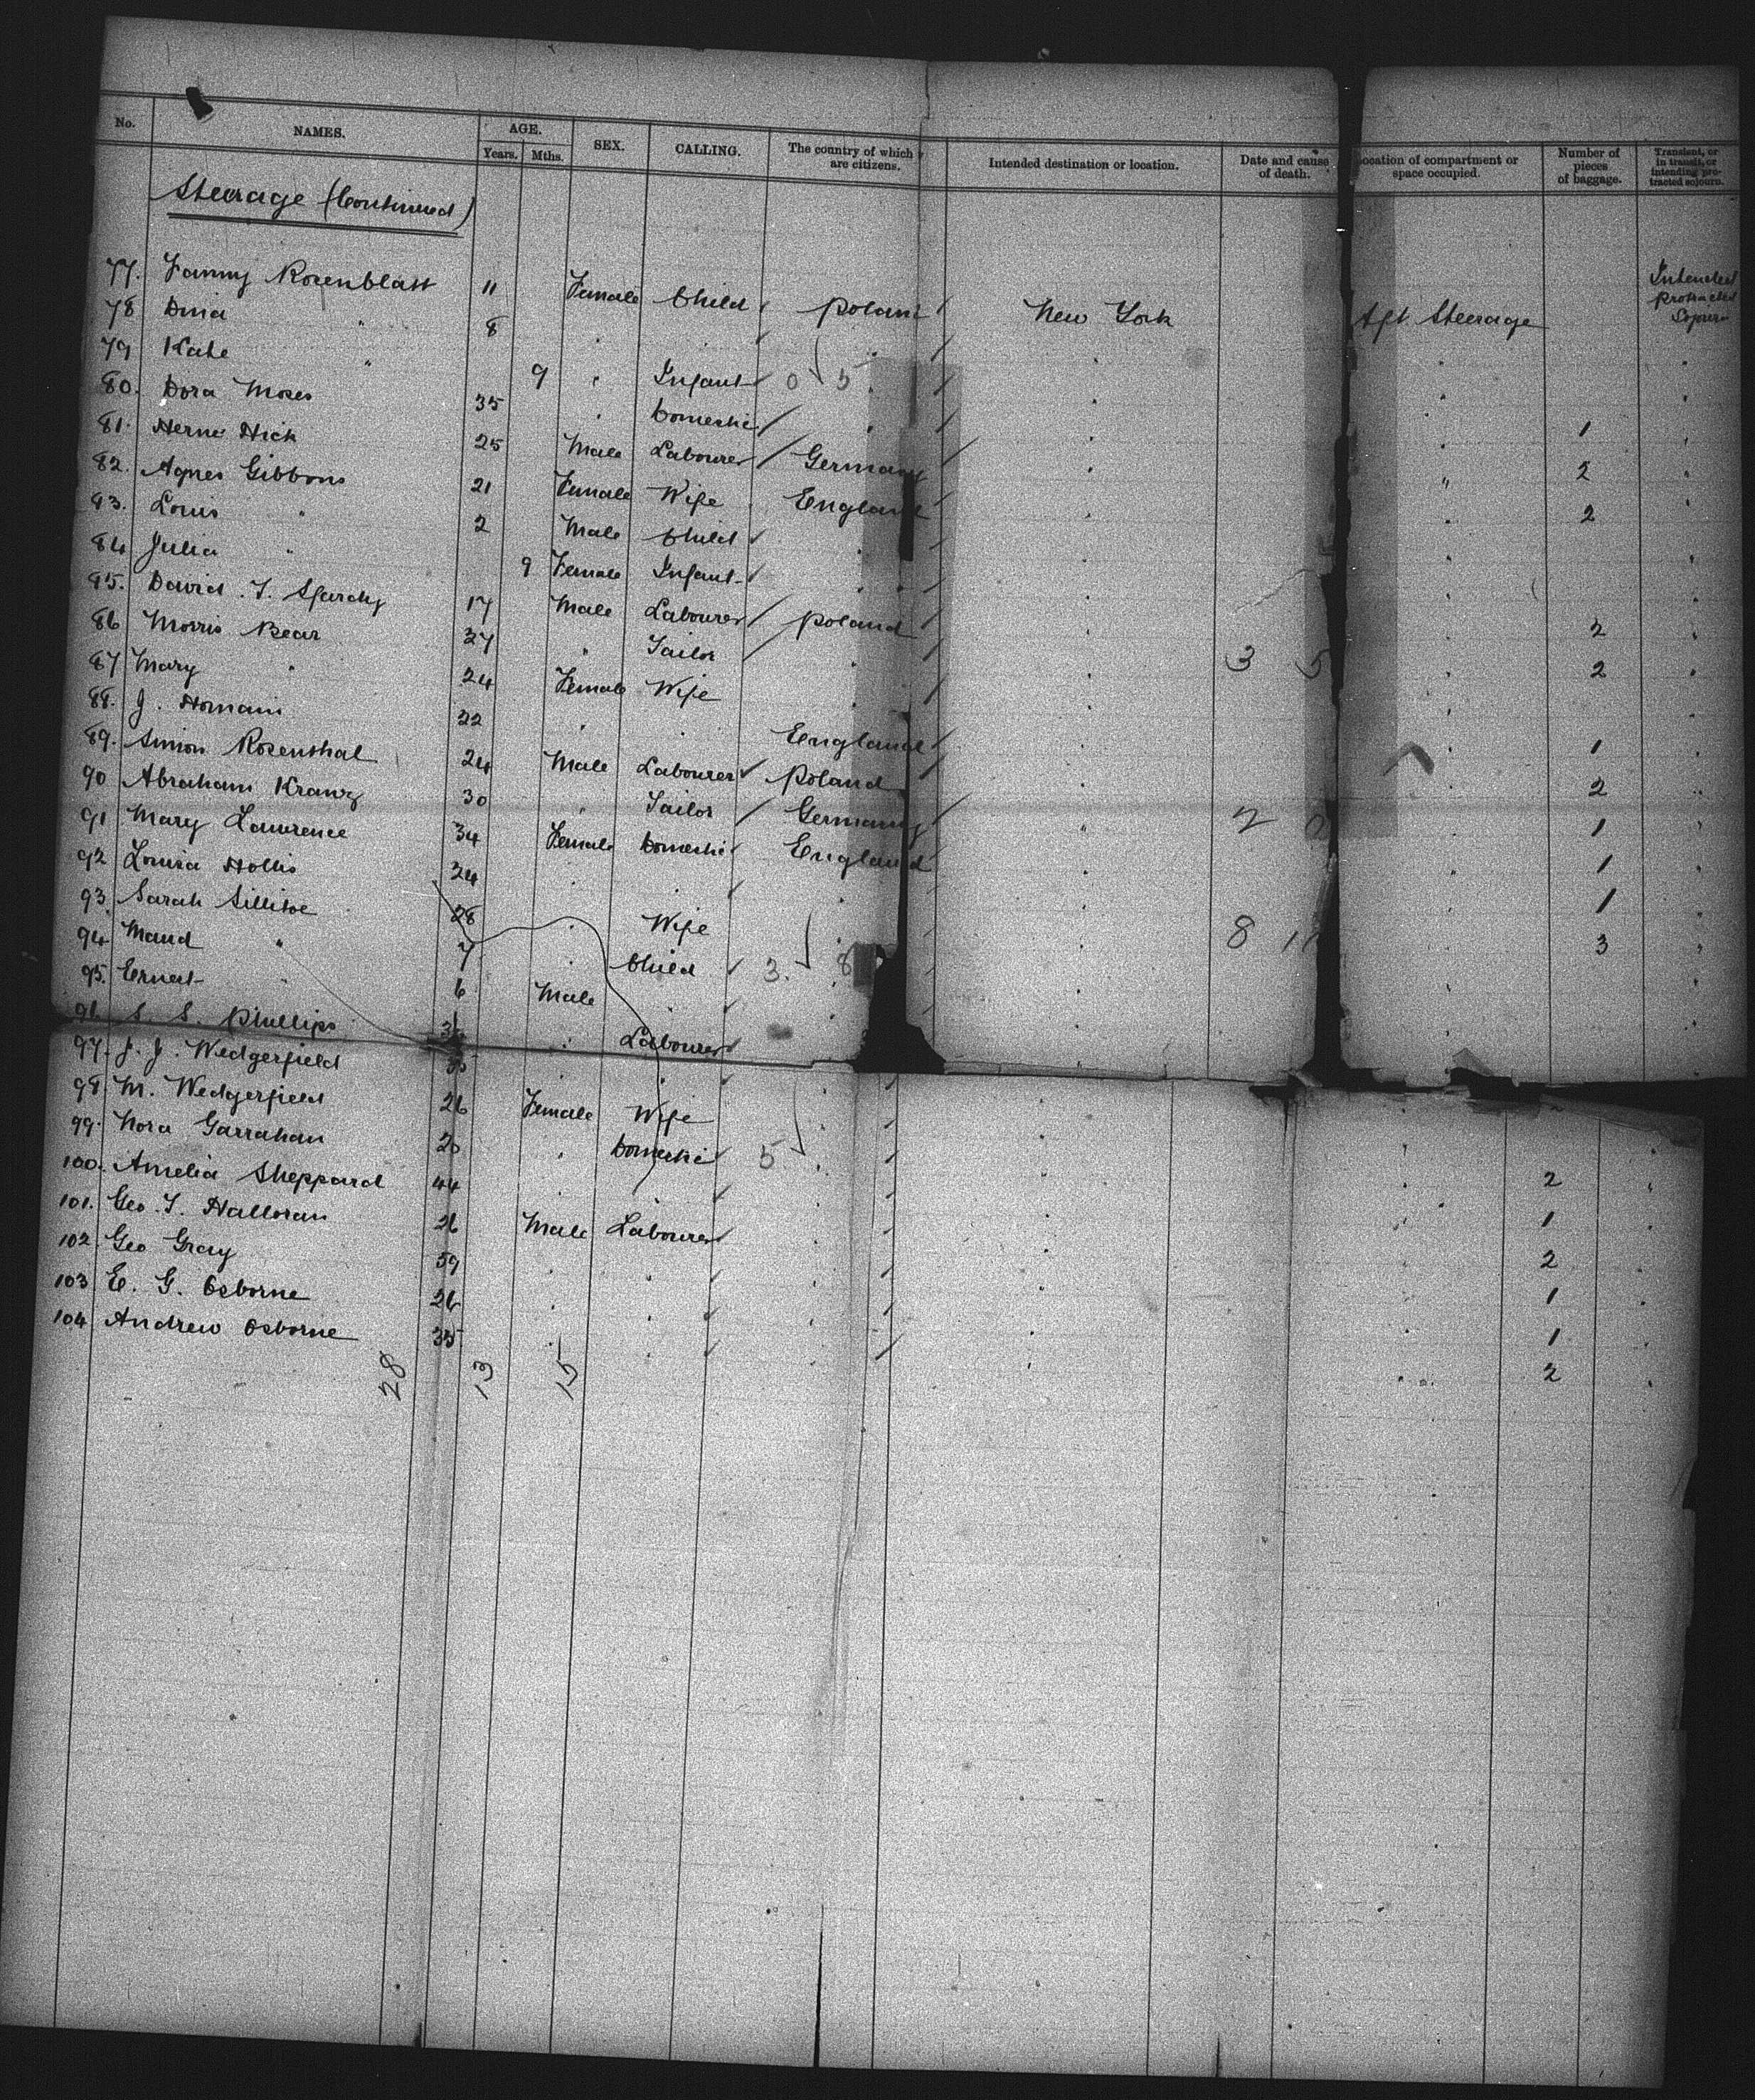 No. NAMES. AGE. Years. Mths. SEX. CALLING. The country of which are citizens. Intended destination or location. Date and cause of death. Location of compartment or space occupied. Number of pieces of baggage. Transient, or in transit, or intending protracted sojourn.
Steerage (Continued)
77. Fanny Rosenblatt 11 Female Child Poland New York Aft Steerage Intended Protracted Sojourn
78 Dina " 8 " " " " " "
79 Kate " 9 " Infant 0 5 " " " "
80. Dora Moses 35 " Domestic " " " 1 "
81. Herne Hick 25 Male Labourer Germany " " 2 "
82. Agnes Gibbons 21 Female Wife England " " 2 "
83. Louis " 2 Male Child " " " "
84 Julia " 9 Female Infant " " " "
85. David . T. 17 Male Labourer Poland " " 2 "
86 Morris Bear 27 " Tailor " " 3 5 " 2 "
87 Mary " 24 Female Wife " " " "
88. J. Homani 22 " " England " " 1 "
89. Simon Rosenthal 24 Male Labourer Poland " " 2 "
90 Abraham Kranz 30 " Tailor Germany " 2 0 " 1 "
91 Mary Lawrence 34 Female Domestic England " " 1 "
92 Louisa Hollis 24 " " " " " 1 "
93. Sarah Sillitoe 28 " Wife " " 8 11 " 3 "
94 Maud " 7 " Child 3. 8 " " "
95. Ernest " 6 Male " " " " "
96 S. S. Phillips " Labourer " " " "
97. J. J. Wedgerfield 35 " " " " " "
98. M. Wedgerfield 26 Female Wife " " " "
99. Nora Garrahan 20 " Domestic 5 " " " 2 "
100. Amelia Sheppard 44 " " " " " 1 "
101. Geo. T. Halloran 26 Male Labourer " " " 2 "
102. Geo Gray 59 " " " " " 1 "
103 E. G. Osborne 26 " " " " " 1 "
104 Andrew Osborne 35 " " " " " 2 "
28 13 15